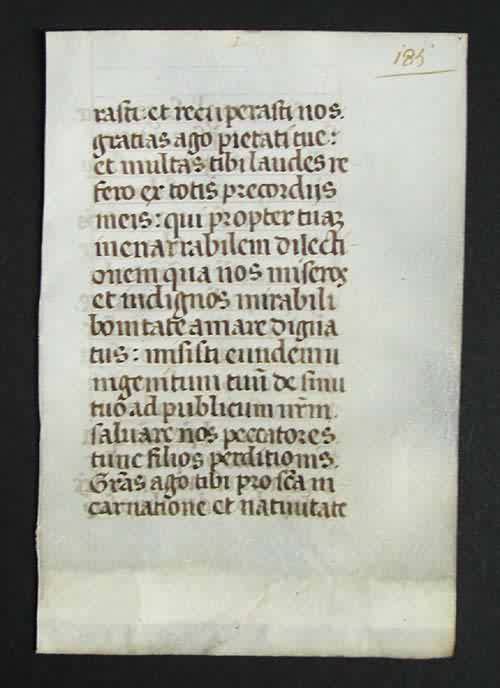 185
rasti: et recuperasti nos.
gratias ago pietati tue:
et multas tibi laudes re
fero ex totis precordiis
meis: qui propter tuaꝫ
inenarrabilem dilecti
onem qua nos miseroꝝ
et indignos mirabili
bonitate amare digna
tus: misisti eundem u
nigenitum tuū de sinu
tuo ad publicum nr̄m.
saluare nos peccatores
tunc filios perditionis.
Grās ago tibi pro sc̄a in
carnatione et natiuitate